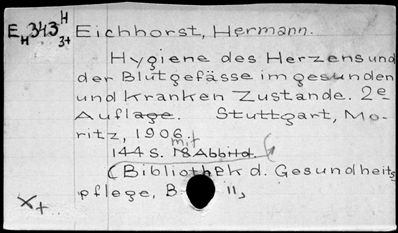 EH343H3+ Eichhorst, Hermann.
Hygiene des Herzens und
der Blutgefässe im gesunden
und kranken Zustande. 2e
Auflage. Stuttgart, Mo-
ritz, 1906.
mit
144 S. 18 Abbild.
(Bibliothek d. Gesundheits
pflege, B 11,
X+